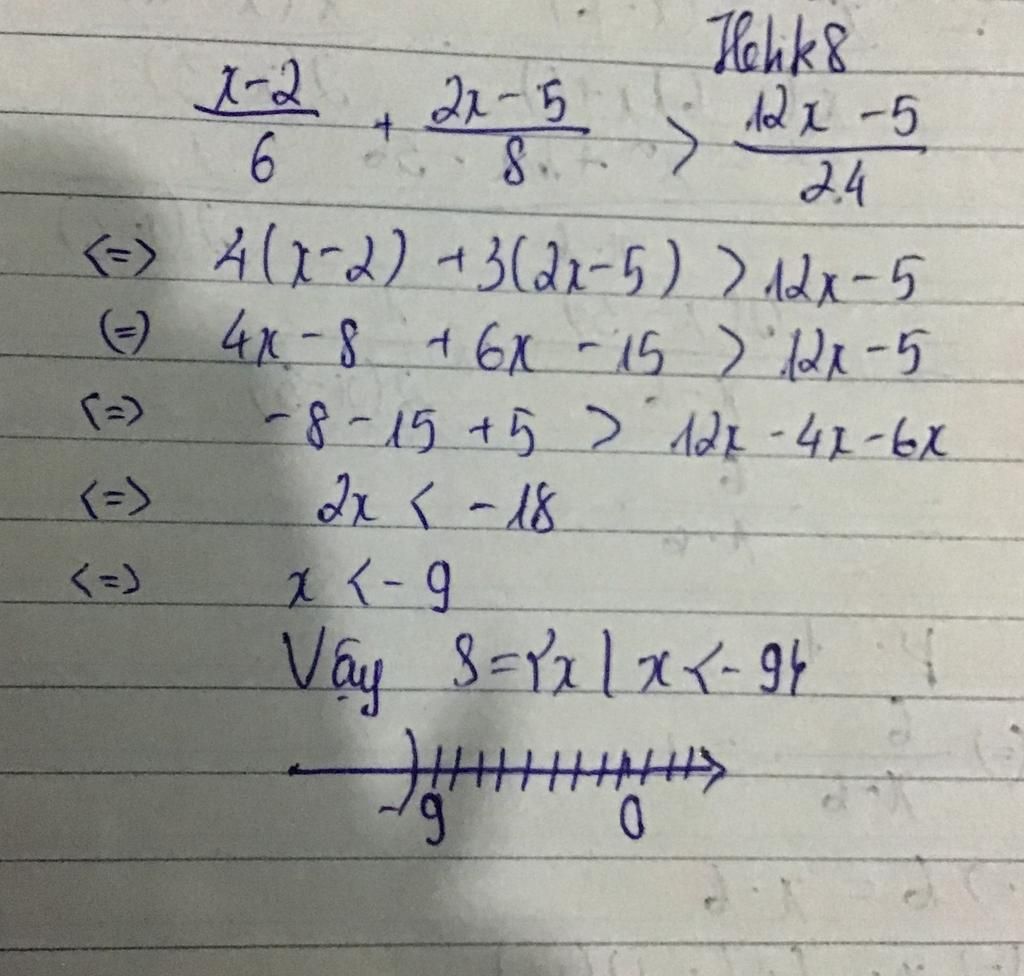 Hehk8
x-2/6 + 2x-5/8 > 12x-5/24
<=> 4(x-2) +3(2x-5) > 12x-5
(=) 4x-8 +6x -15 > 12x-5
<=> -8-15+5 > 12x-4x-6x
<=> 2x < -18
<=> x <-9
Vậy S={x | x<-9}
-9 0